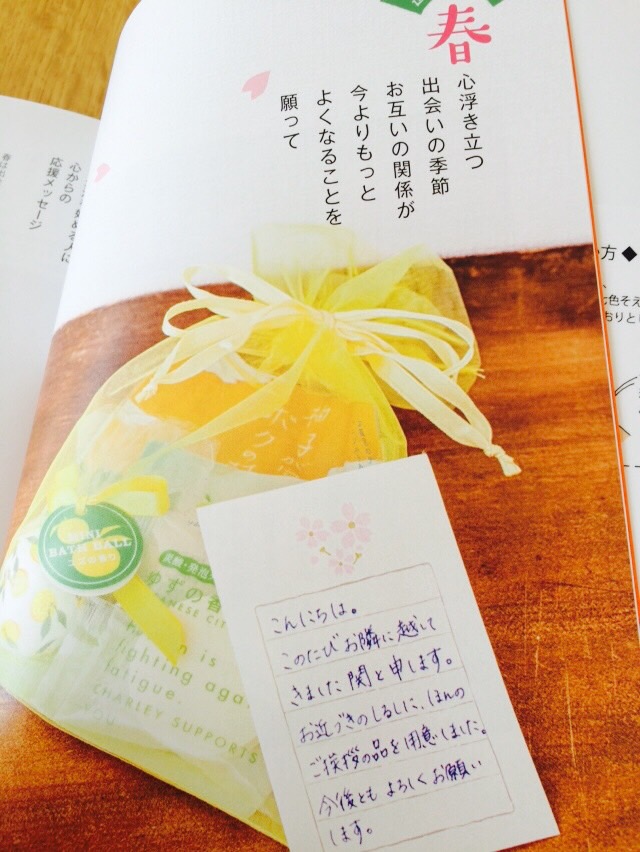 春
心浮き立つ
出会いの季節
お互いの関係が
今よりもっと
よくなることを
願って
心からの
応援メッセージ
方◆
MINI
BATH BALL
ゆずの香
fighting aga
fatigue.
CHARLEY SUPPORTS
YOU
こんにちは。
このたびお隣に越して
きました関と申します。
お近づきのしるしに、ほんの
ご挨拶の品を用意しました。
今後ともよろしくお願い
します。